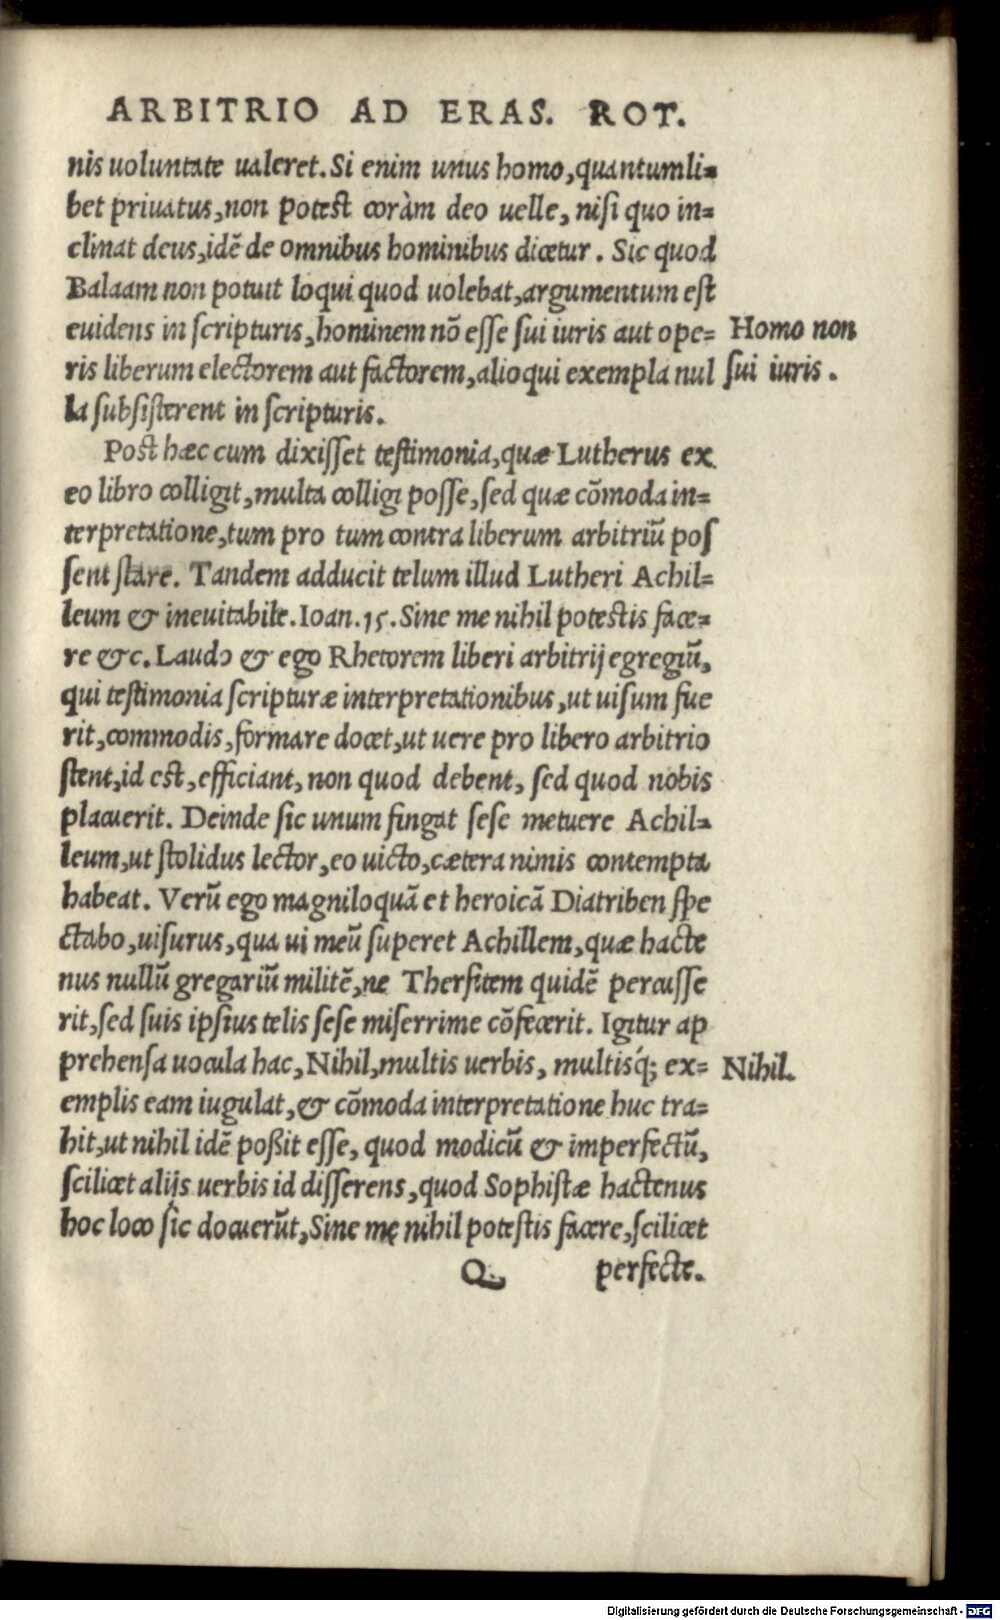 ARBITRIO AD ERAS. ROT.
nis uoluntate ualeret. Si enim unus homo, quantumli=
bet priuatus, non potest coràm deo uelle, nisi quo in=
clinat deus, idẽ de omnibus hominibus dicetur. Sic quod
Balaam non potuit loqui quod uolebat, argumentum est
euidens in scripturis, hominem nõ esse sui iuris aut ope=
ris liberum electorem aut factorem, alioqui exempla nul
la subsisterent in scripturis.
Homo non
sui iuris.
Post hæc cum dixisset testimonia, quæ Lutherus ex
eo libro colligit, multa colligi posse, sed quæ cõmoda in=
terpretatione, tum pro tum contra liberum arbitriũ pos
sent stare. Tandem adducit telum illud Lutheri Achil=
leum & ineuitabile. Ioan. 15. Sine me nihil potestis face=
re &c. Laudo & ego Rhetorem liberi arbitrij egregiũ,
qui testimonia scripturæ interpretationibus, ut uisum fue
rit, commodis, formare docet, ut uere pro libero arbitrio
stent, id est, efficiant, non quod debent, sed quod nobis
placuerit. Deinde sic unum fingat sese metuere Achil=
leum, ut stolidus lector, eo uicto, cætera nimis contempta
habeat. Verũ ego magniloquã et heroicã Diatriben spe
ctabo, uisurus, qua ui meũ superet Achillem, quæ hacte
nus nullũ gregariũ militẽ, ne Thersitem quidẽ percusse
rit, sed suis ipsius telis sese miserrime cõfecerit. Igitur ap
prehensa uocula hac, Nihil, multis uerbis, multisq́; ex=
Nihil.
emplis eam iugulat, & cõmoda interpretatione huc tra=
hit, ut nihil idẽ poßit esse, quod modicũ & imperfectũ,
scilicet alijs uerbis id disserens, quod Sophistæ hactenus
hoc loco sic docuerũt, Sine me nihil potestis facere, scilicet
Q perfecte.
Digitalisierung gefördert durch die Deutsche Forschungsgemeinschaft - DFG